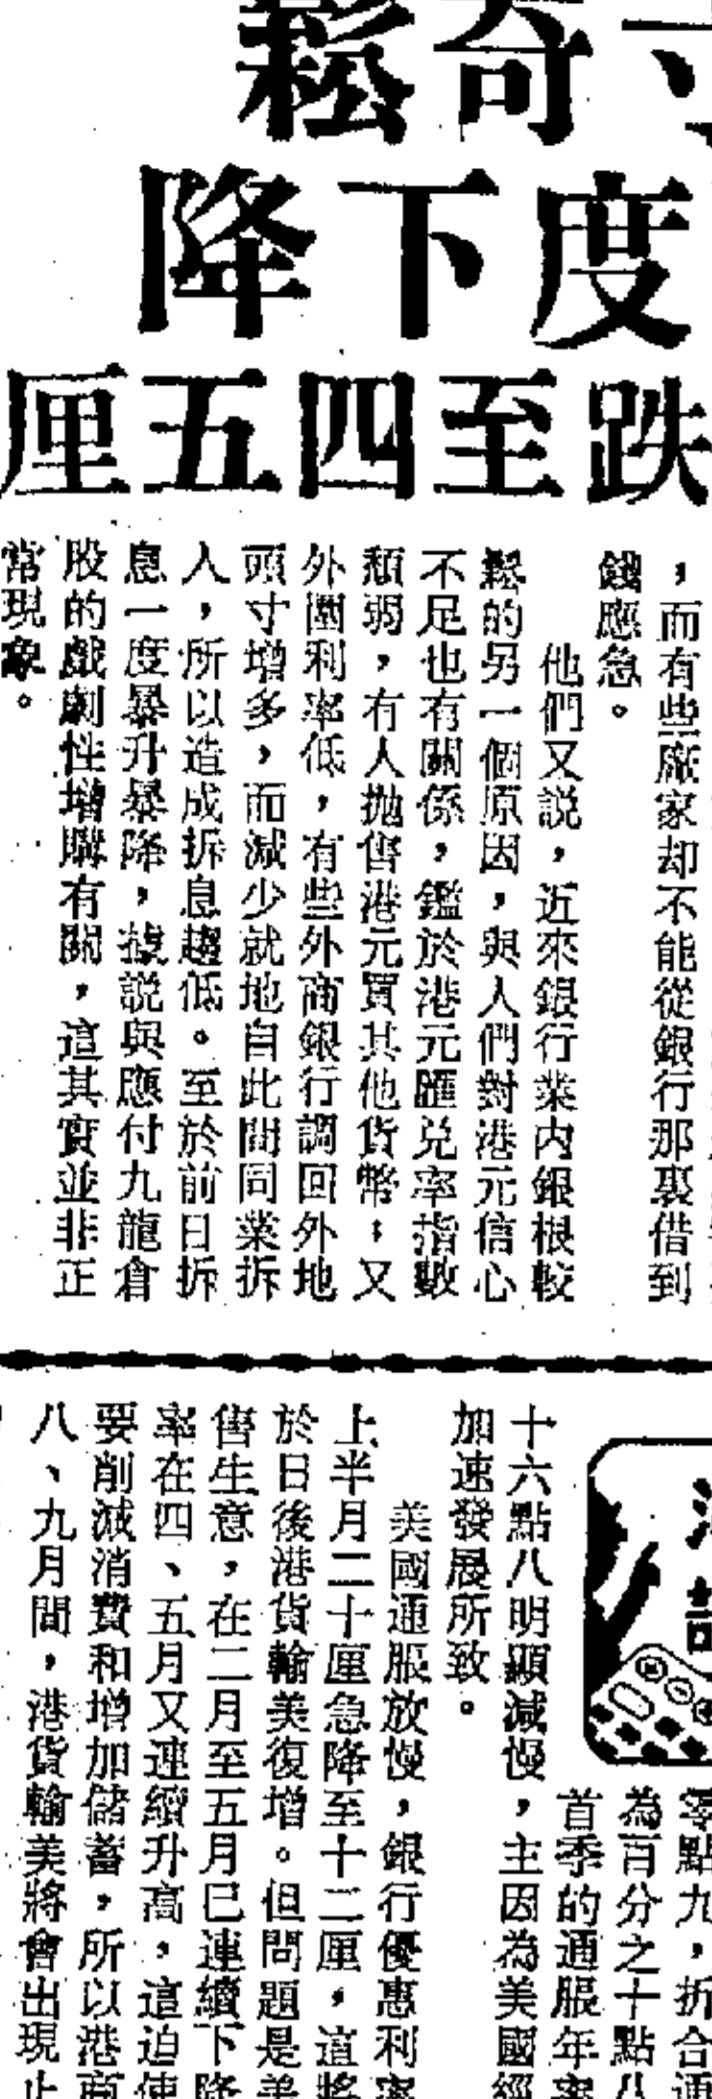 鬆奇寸
降下度
厘五四至跌
，而有些廠家却不能從銀行那裏借到
錢應急。
他們又説，近來銀行業内銀根較
鬆的另一個原因，與人們對港元信心
不足也有關係，鑑於港元匯兑率指數
頹弱，有人拋售港元買其他貨幣；又
外圍利率低，有些外商銀行調回外地
頭寸增多，而減少就地自此間同業拆
人，所以造成拆息趨低。至於前日拆
息一度暴升暴降，據説與應付九龍倉
股的戲劇性增購有關，這其實並非正
常現象。
零點九，折合通
為百分之十點八
首季的通脹年率
十六點八明顯減慢，主因為美國經
加速發展所致。
美國通脹放慢，銀行優惠利率
上半月二十厘急降至十二厘，這將
於日後港貨輸美復增。但問題是美
售生意，在二月至五月已連續下降
率在四、五月又連續升高，這迫使
要削減消費和增加儲蓄，所以港商
八、九月間，港貨輸美將會出現止